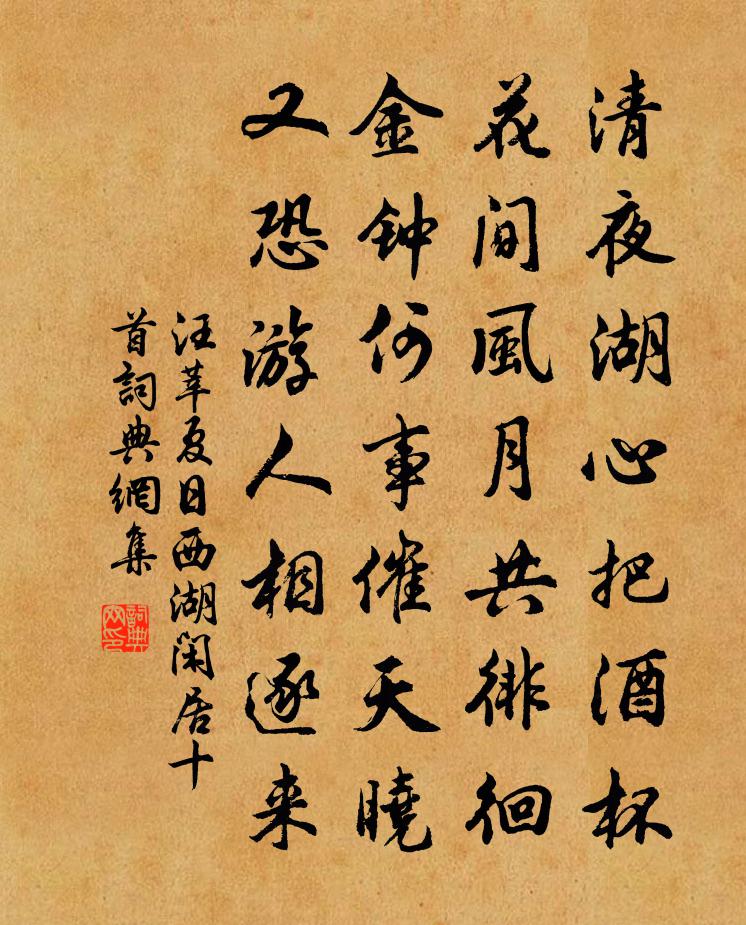 清夜湖心把酒杯
花間風月共徘徊
金钟何事催天曉
又恐游人相逐来
汪莘夏日西湖闲居十
首詞典網集